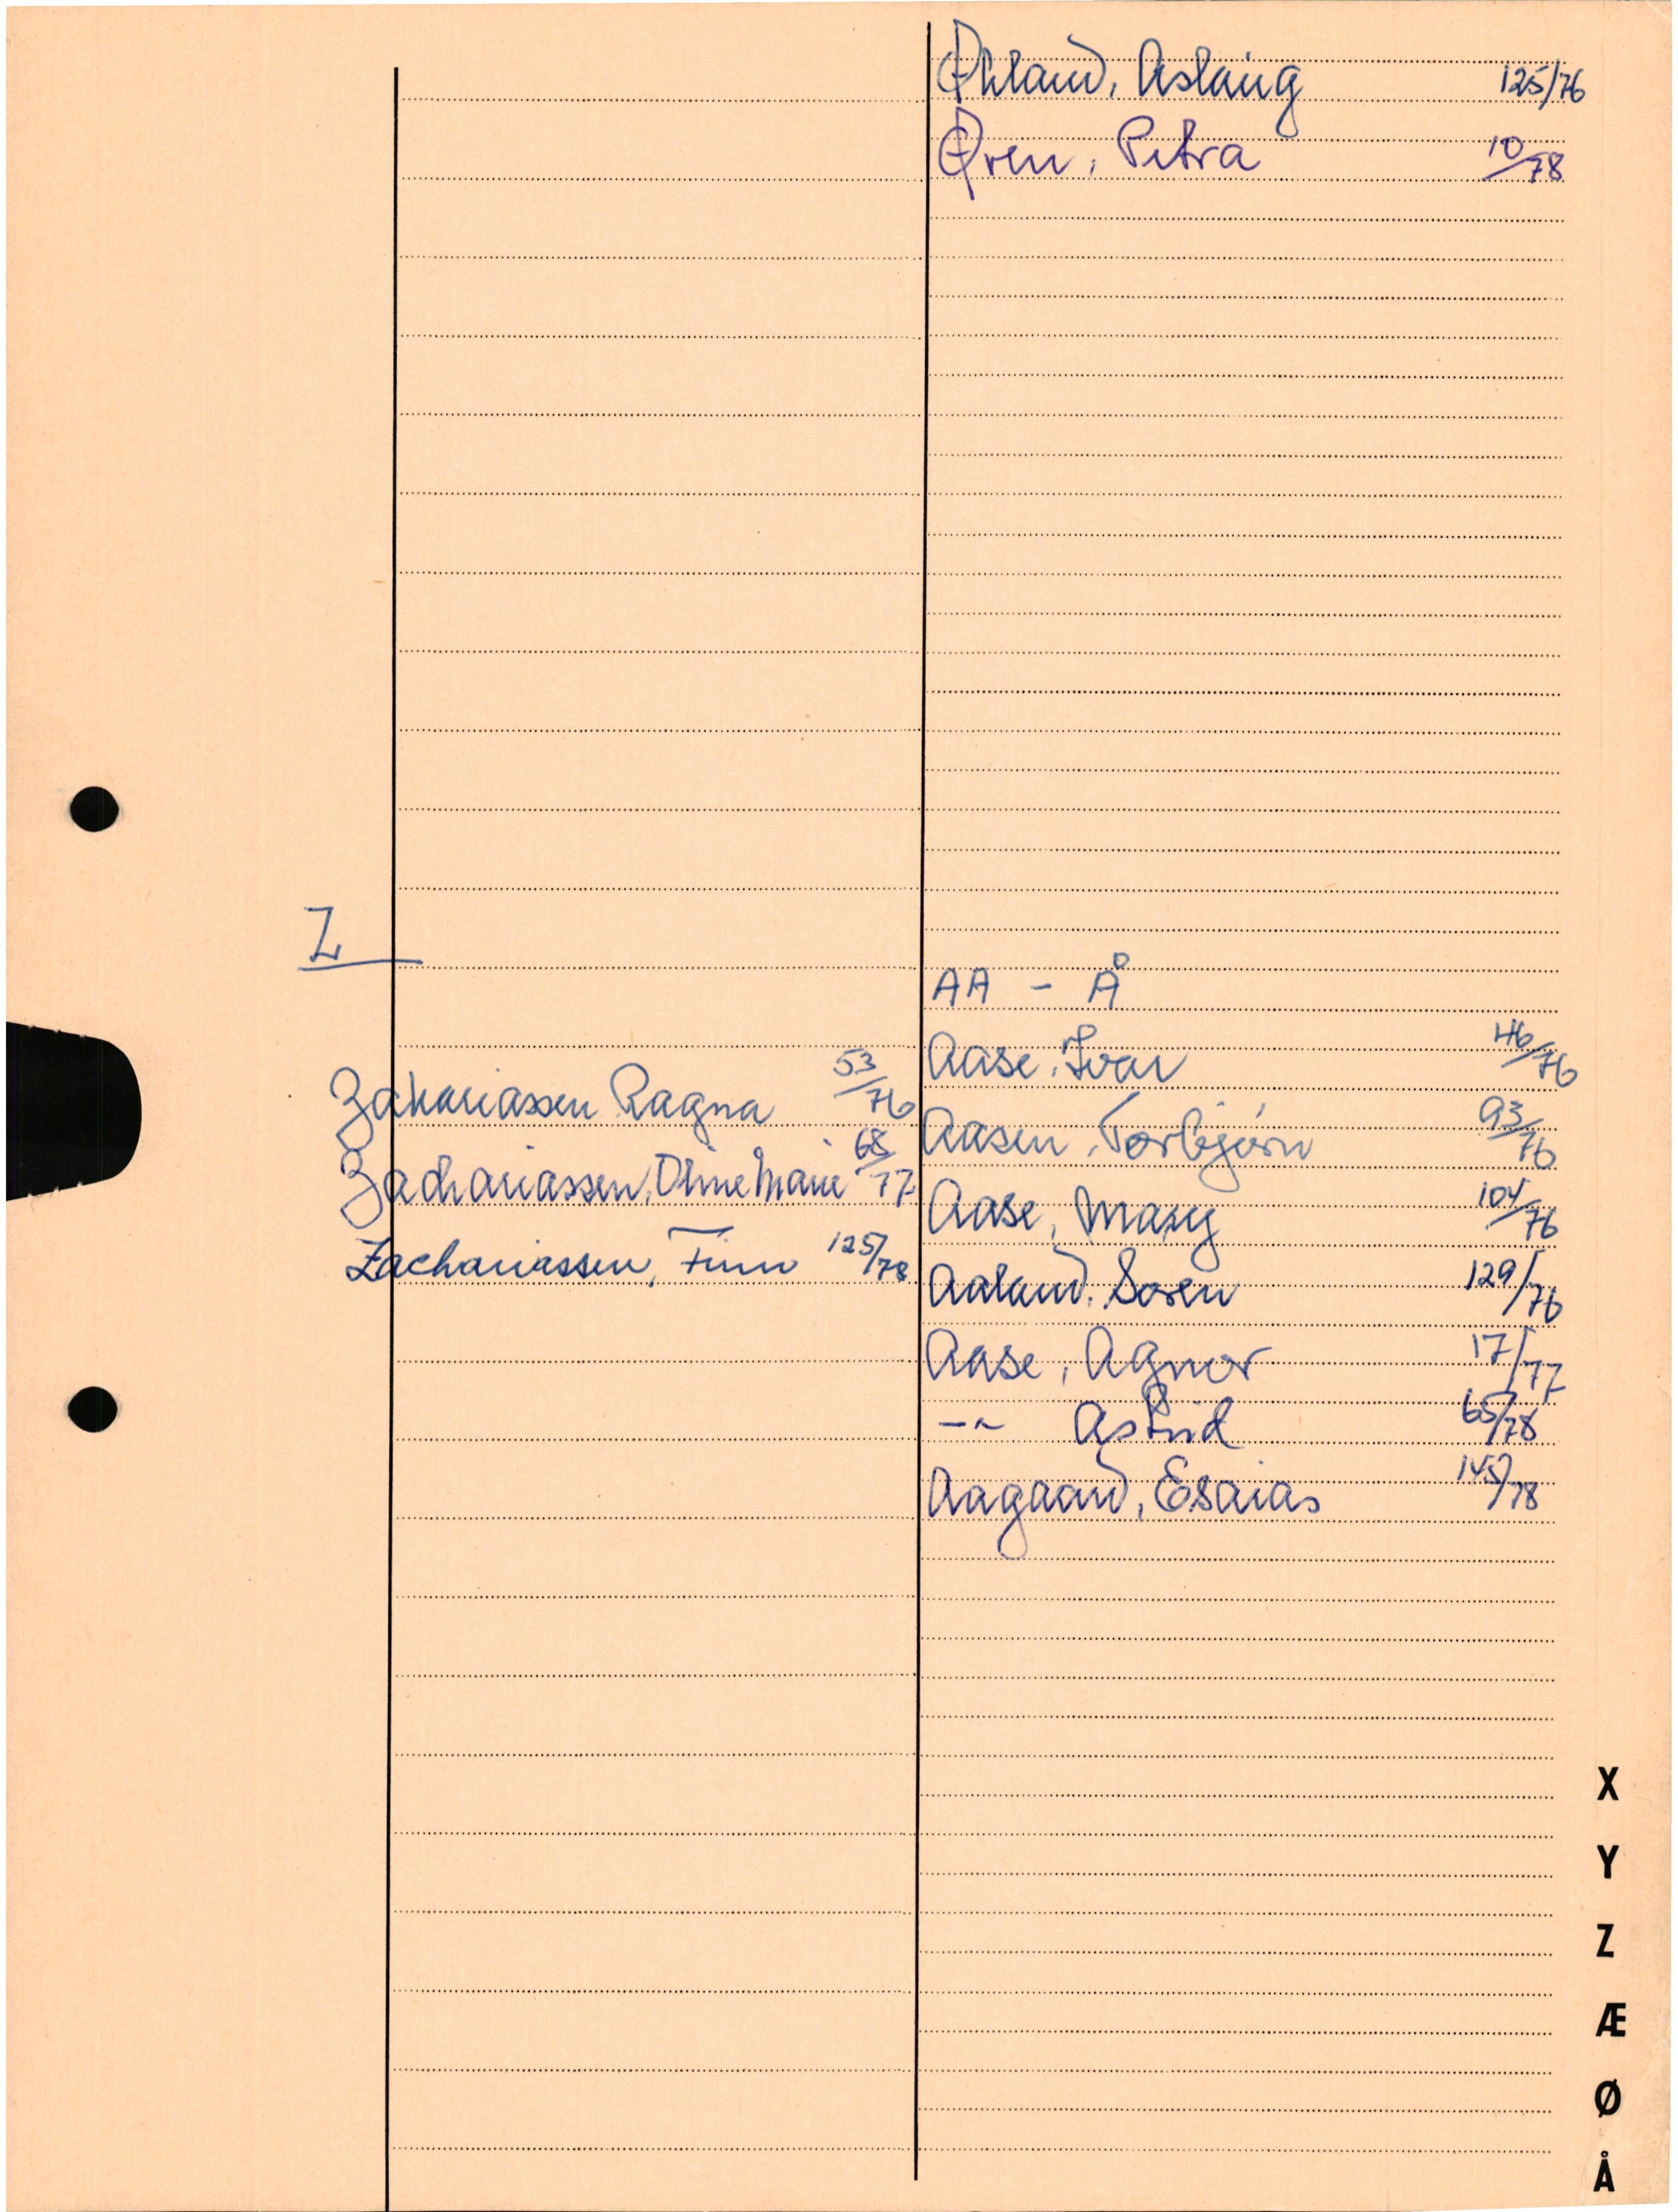 Øhland, Aslaug 125/76
Øren, Petra 10/78
Z
Zakariassen Ragna 53/76
Zachariassen, Oline Marie 68/77
Zachariassen, Finn 125/78
AA - Å
Aase, Ivar 46/76
Aasen, Torbjørn 93/76
Aase, Mary 104/76
Aaland, Soren 129/76
Aase, Agnor 17/77
-"- Astrid 65/78
Aagaard, Esaias 145/78
X
Y
Z
Æ
Ø
Å